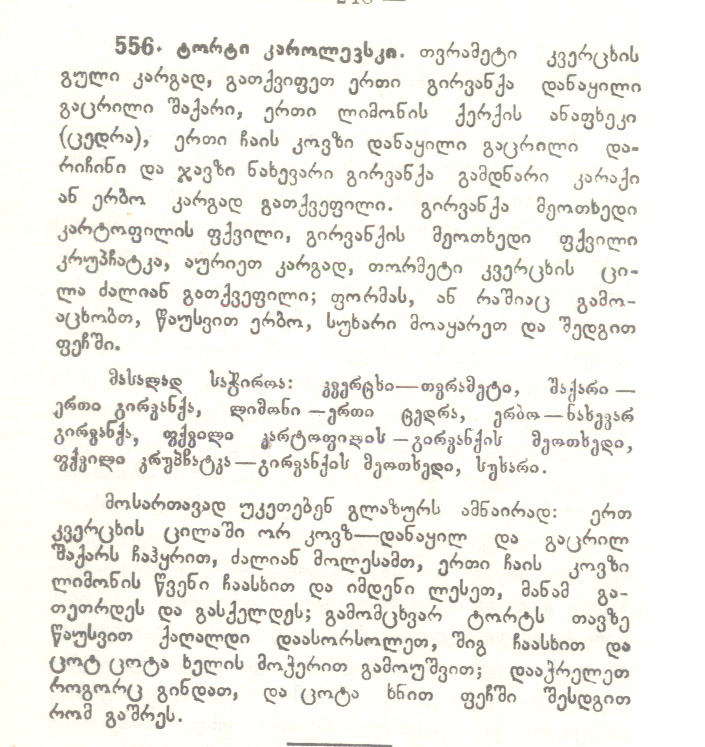 556. ტორტი კაროლევსკი. თვრამეტი კვერცხის
გული კარგად, გათქვიფეთ ერთი გირვანქა დანაყილი
გაცრილი შაქარი, ერთი ლიმონის ქერქის ანაფხეკი
(ცედრა), ერთი ჩაის კოვზი დანაყილი გაცრილი და-
რიჩინი და ჯავზი ნახევარი გირვანქა გამდნარი კარაქი
ან ერბო კარგად გათქვეფილი. გირვანქა მეოთხედი
კარტოფილის ფქვილი, გირვანქის მეოთხედი ფქვილი
კრუპჩატკა, აურიეთ კარგად, თორმეტი კვერცხის ცი-
ლა ძალიან გათქვეფილი; ფორმას, ან რაშიაც გამო-
აცხობთ, წაუსვით ერბო, სუხარი მოაყარეთ და შედგით
ფეჩში.
მასალად საჭიროა: კვერცხი—თვრამეტი, შაქარი —
ერთი გირვანქა, ლიმონი —ერთი ცედრა, ერბო—ნახევარ
გირვანქა, ფქვილი კარტოფილის —გირვანქის მეოთხედი,
ფქვილი კრუპჩატკა—გირვანქის მეოთხედი, სუხარი.
მოსართავად უკეთებენ გლაზურს ამნაირად: ერთ
კვერცხის ცილაში ორ კოვზ—დანაყილ და გაცრილ
შაქარს ჩაჰყრით, ძალიან მოლესამთ, ერთი ჩაის კოვზი
ლიმონის წვენი ჩაასხით და იმდენი ლესეთ, მანამ გა-
თეთრდეს და გასქელდეს; გამომცხვარ ტორტს თავზე
წაუსვით ქაღალდი დაასორსოლეთ, შიგ ჩაასხით და
ცოტ ცოტა ხელის მოჭერით გამოუშვით; დააჭრელეთ
როგორც გინდათ, და ცოტა ხნით ფეჩში შესდგით
რომ გაშრეს.